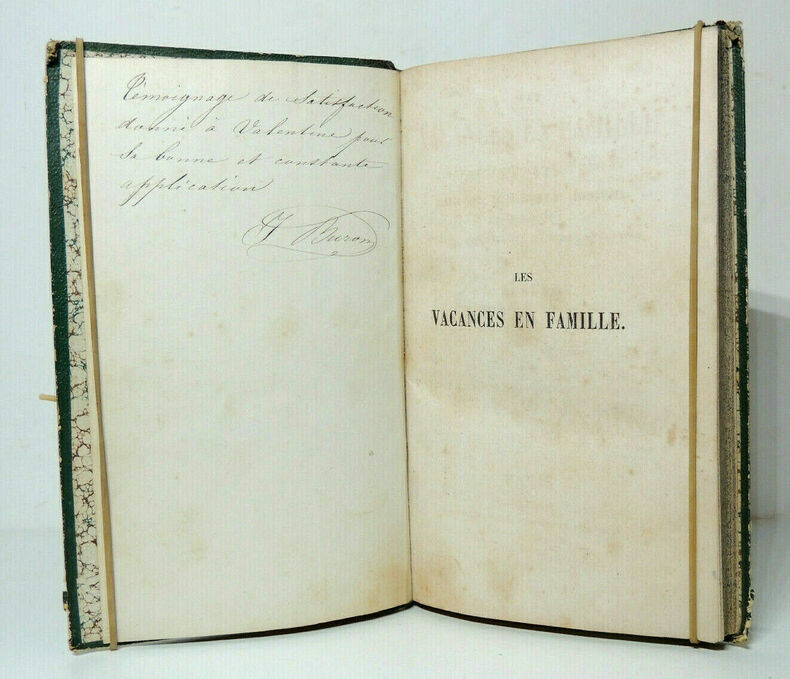 Témoignage de Satisfaction
donné à Valentine pour
sa bonne et constante
application
Buron
LES
VACANCES EN FAMILLE.